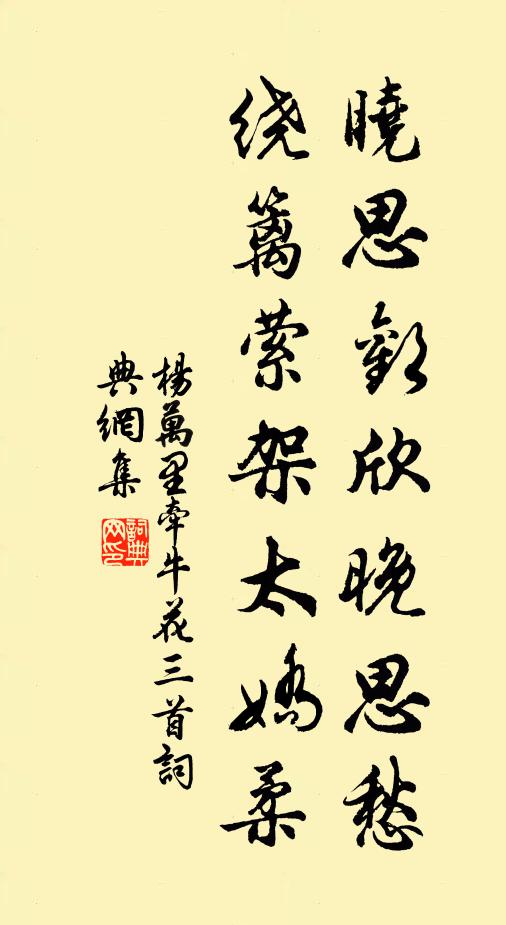 曉思歡欣晚思愁
绕篱萦架太嬌柔
楊萬里牽牛花三首詞
典網集
詞典
网印